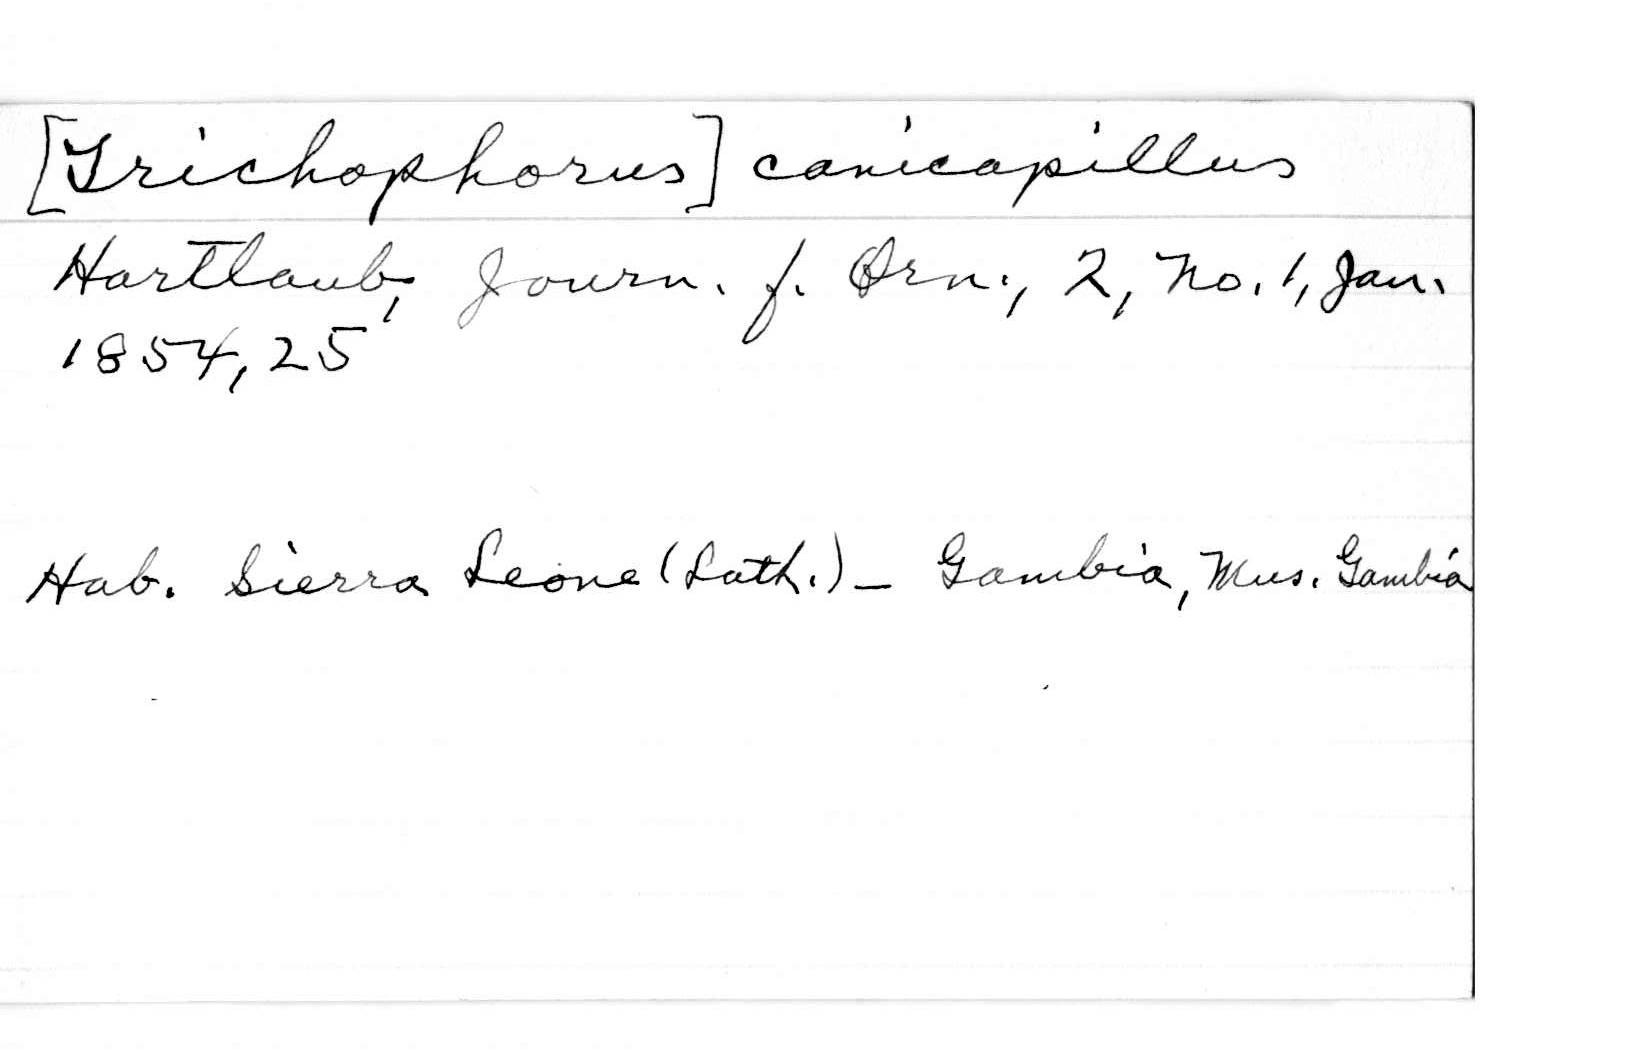 [Trichophorus] canicapillus
Hartlaub, Journ. f. Orn., 2, No. 1, Jan.
1854, 25
Hab. Sierra Leone (Lath.) – Gambia, Mus. Gambia